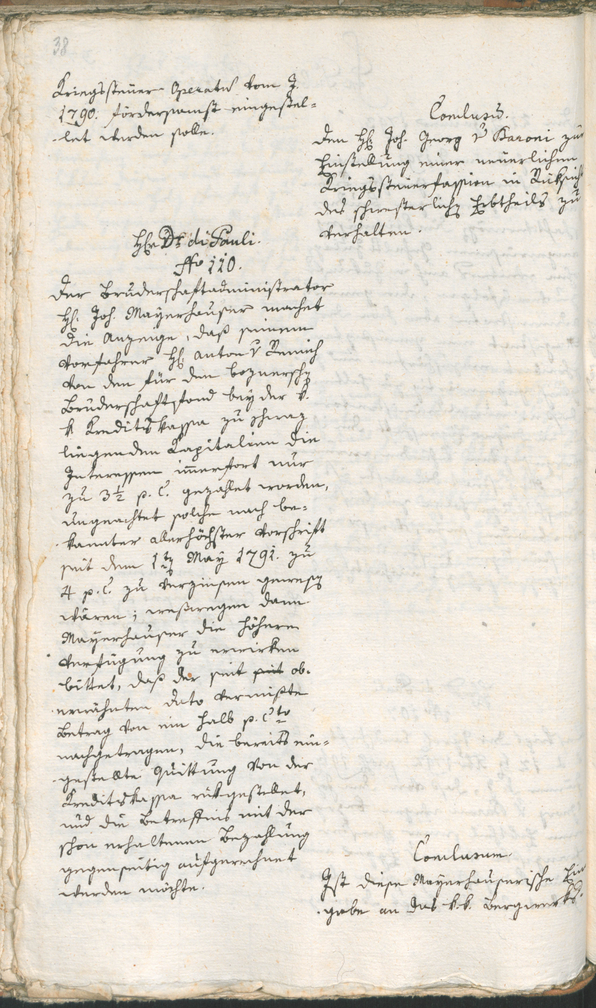 38
Kriegssteuer Operats vom J.
1790. fördersamst eingestel-
let werden solle.
Conclusum.
Den H. Joh. Georg v Baroni zur
Einstellung einer neuerlichen
Kriegssteuerfassion in Rüksicht
des schwesterlichen Erbtheils zu
verhalten.
Hr. Dr. di Pauli.
No 110.
Der Bruderschaftadministrator
H. Joh. Mayerhauser machet
die Anzeige, daß seinem
Vorfahrer H. Anton v Remich
von den für den boznerschen
Bruderschaftsfond bey der k.
k. Kreditskassa zu Schwaz
liegenden Kapitalien die
Interessen immerfort nur
zu 3½ p. C. gezahlet worden,
ungeachtet solche nach be-
kannter allerhöchster Vorschrift
seit dem 1ten May 1791. zu
4 p. C. zu verzinsen gewesen
wären; weßwegen dann
Mayerhauser die höhere
Verfügung zu erwirken
bittet, daß der seit ob-
erwähnten dato vermißte
Betrag von ein halb p. Cto
nachgetragen, die bereits ein-
gestellte Quittung von der
Kreditskassa rükgestellet,
und die Betreffniß mit der
schon erhaltenen Bezahlung
gegenseitig aufgerechnet
werden möchte.
Conclusum.
Ist diese Mayerhauserische Ein-
gabe an das k.k. Bergwerks-